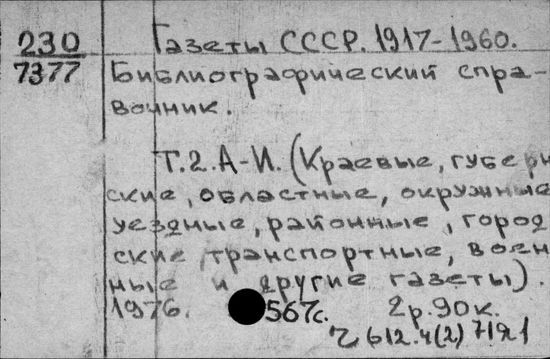 230 Газеты СССР. 1917-1960.
7377 Библиографический спра-
вочник.
Т.2. А-И. (Краевые, губерн
ские, областные, окружные
уездные, районные, город
ские, транспортные, воен
ные и другие газеты).
1976. 567с. 2р.90к.
612.4(2)